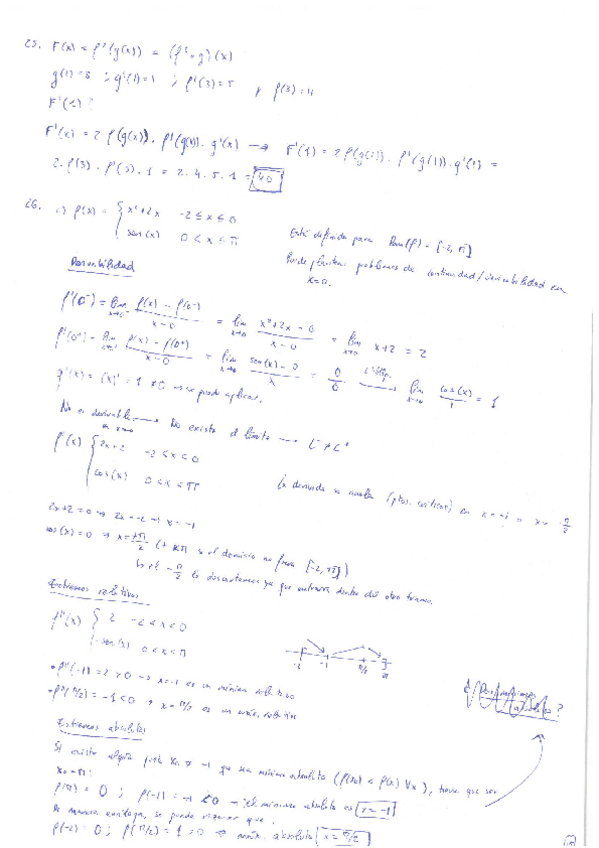 25. F(x) = f²(g(x)) = (f²∘g)(x)
g(1)=3 ; g'(1)=1 ; f'(3)=5 y f(3)=4
F'(1)?
F'(x) = 2 f(g(x)) · f'(g(x)) · g'(x) → F'(1) = 2 f(g(1)) · f'(g(1)) · g'(1) =
2 · f(3) · f'(3) · 1 = 2 · 4 · 5 · 1 = 40
26. f(x) = { x²+2x -2 ≤ x ≤ 0
sen(x) 0 < x ≤ π
Está definida para Dom(f) = [-2, π]
Puede plantear problemas de continuidad/derivabilidad en
x=0.
Derivabilidad
f'(0⁻) = lim x→0⁻ (f(x) - f(0⁻))/(x-0) = lim x→0 (x²+2x-0)/(x-0) = lim x→0 x+2 = 2
f'(0⁺) = lim x→0⁺ (f(x) - f(0⁺))/(x-0) = lim x→0 (sen(x)-0)/x = 0/0 L'Hôp. → lim x→0 cos(x)/1 = 1
g'(x) = (x)' = 1 ≠ 0 → se puede aplicar.
No es derivable en x=0 → No existe el límite → L⁻ ≠ L⁺
f'(x) { 2x+2 -2 < x < 0
cos(x) 0 < x < π
La derivada se anula (ptos. críticos) en x=-1 o x= π/2
2x+2=0 → 2x=-2 → x=-1
cos(x)=0 → x= ±π/2 (+ kπ si el dominio no fuera [-2, π])
→ el -π/2 lo descartamos ya que entraría dentro del otro tramo.
Extremos relativos
f''(x) { 2 -2 < x < 0
-sen(x) 0 < x < π
-2 -1 π/2 π
• f''(-1) = 2 > 0 → x=-1 es un mínimo relativo
• f''(π/2) = -1 < 0 → x=π/2 es un máx. relativo
Extremos absolutos
Si existe algún punto x₀ ≠ -1 que sea mínimo absoluto (f(x₀) < f(x) ∀x), tiene que ser
x₀=π:
f(π) = 0 ; f(-1) = -1 < 0 → el mínimo absoluto es x=-1
De manera análoga, se puede razonar que:
f(-2)=0 ; f(π/2) = 1 > 0 → máx. absoluto x=π/2